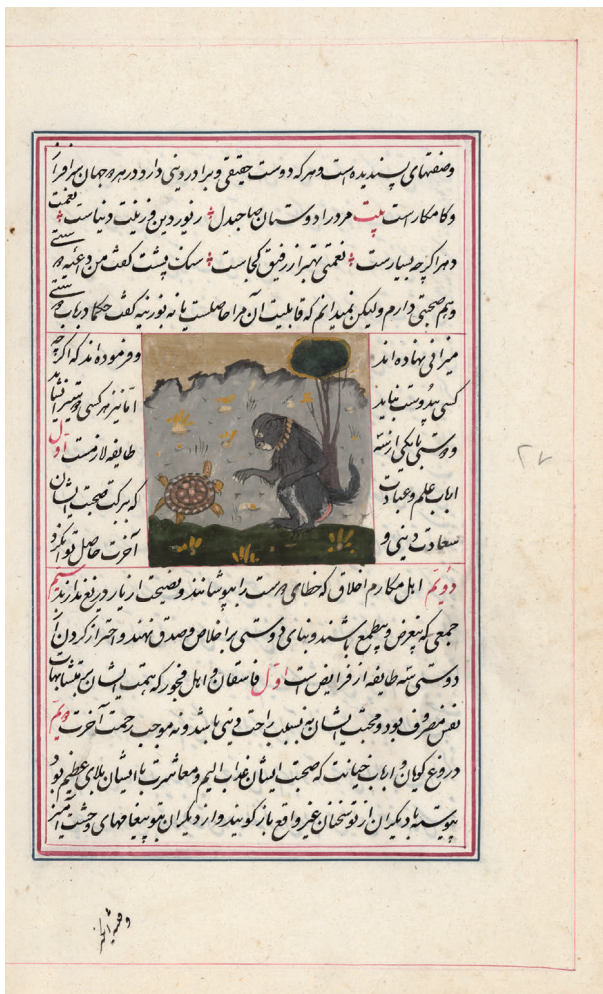 وصفتهای پسندیده است و هر که دوست حقیقی و برادر دینی دارد در هر دو جهان سرافراز
و کامکار است بیت هر دو را دوستان صاحبدل رنور دین و زینت دنیاست نعمت
دهر اگر چه بسیار است نعمتی بهتر از رفیق کجاست سنک پشت کفت من داعیه دوستی
و هم صحبتی دارم ولیکن نمیدانم که قابلیت آن مرا حاصلست یا نه بوزینه کفت حکما در باب دوستی
میزانی نهاده اند
و فرموده اند که اگر چه
کسی بیدوست نباید
اما نیز هر کسی دوستی را نشاید
و دوستی با یکی از سه
طایفه لازمست اول
ارباب علم و عبادت
که ببرکت صحبت ایشان
سعادت دینی و
آخرت حاصل توان کرد
دویم اهل مکارم اخلاق که خطای دوست را بپوشانند و نصیحت از یار دریغ ندارند سیم
جمعی که بیغرض و بیطمع باشند و بنای دوستی بر اخلاص و صدق نهند و احتراز کردن از
دوستی سه طایفه از فرایض است اول فاسقان و اهل فجور که همت ایشان بر مشتهیات
نفس مصروف بود و محبت ایشان نه بسبب راحت دینی باشد و نه موجب رحمت آخرت دویم
دروغ کویان و ارباب خیانت که صحبت ایشان عذاب الیم و معاشرت با ایشان بلای عظیم بود
پیوسته با دیکران از تو سخنان غیر واقع باز کویند و از دیکران بتو پیغامهای وحشت آمیز
۲۷